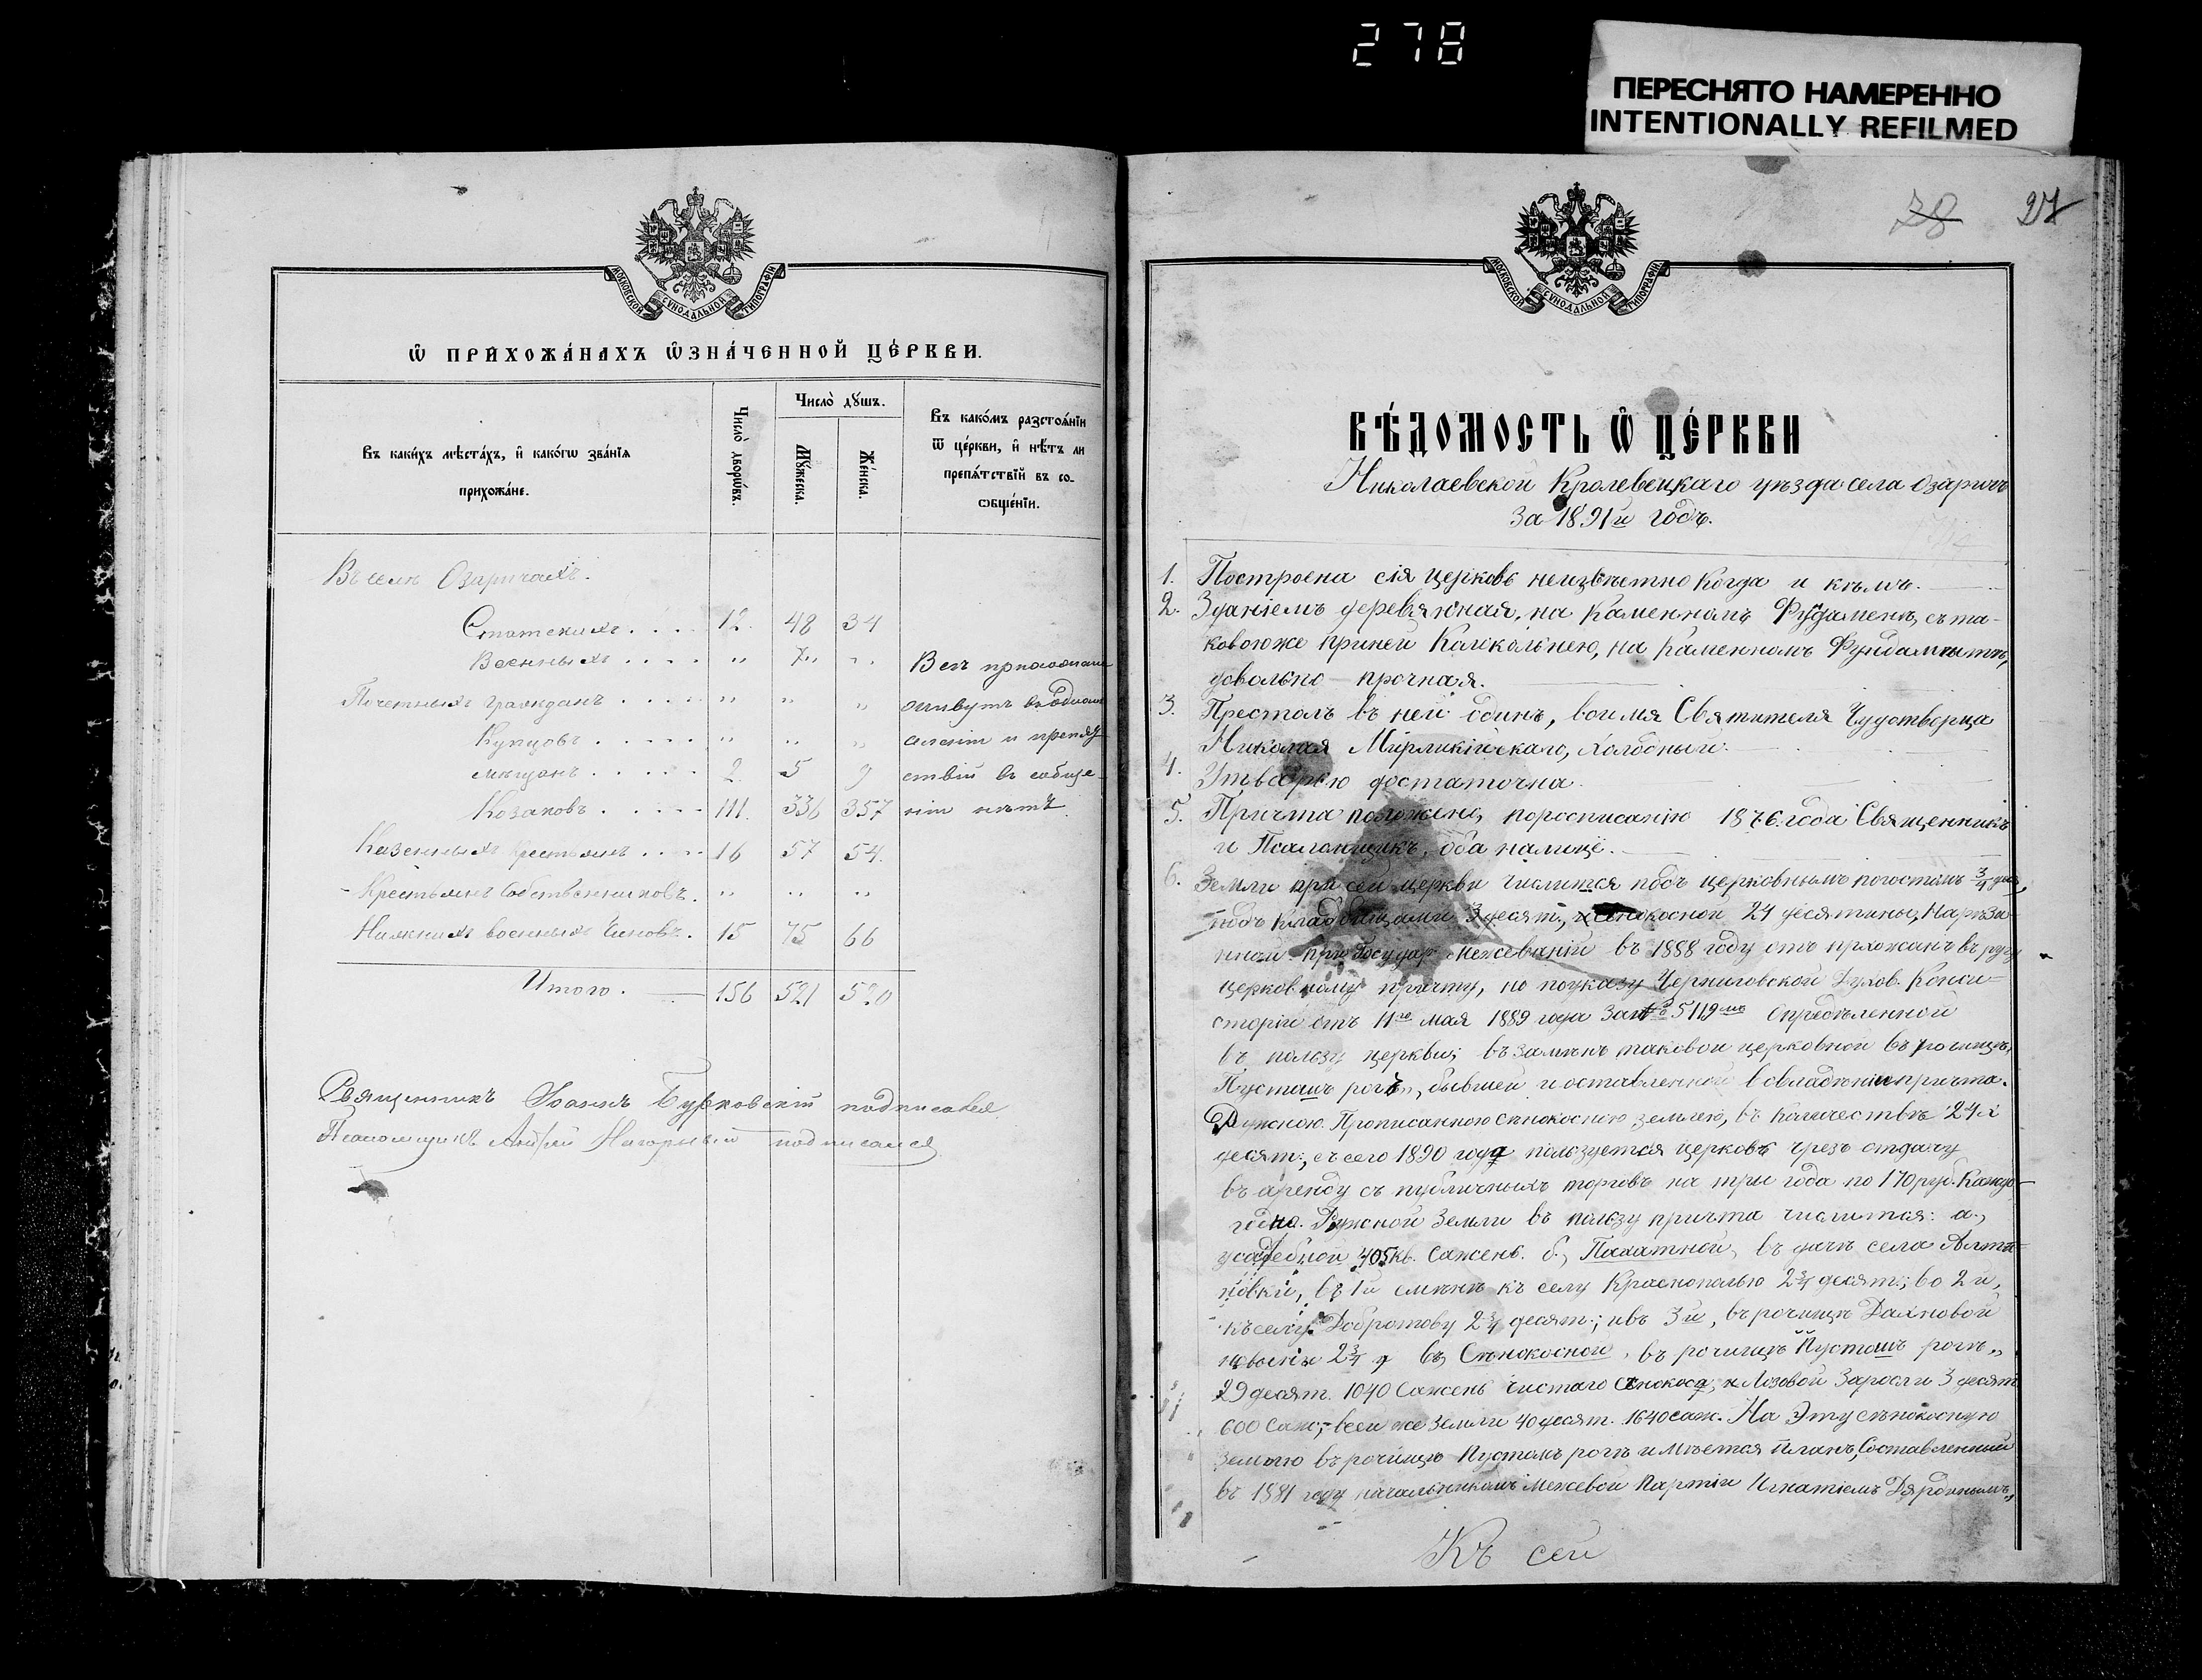 278
ПЕРЕСНЯТО НАМЕРЕННО
INTENTIONALLY REFILMED
МОСКОВСКОЙ СѴНОДАЛЬНОЙ ТИПОГРАФІИ
Ѡ ПРИХОЖА́НАХЪ ѠЗНА́ЧЕННОЙ ЦЕ́РКВИ.
Въ каки́хъ мѣста́хъ, и како́гѡ зва́нїѧ прихожа́не.
Число̀ дворѡ́въ.
Число̀ дꙋшъ.
Мꙋ́жеска.
Же́нска.
Въ како́мъ разстоѧ́нїи
ѿ це́ркви, и нѣ́тъ ли
препѧ́тствїй въ со-
ѻбще́нїи.
Въ селѣ Озаричахъ.
Статскихъ . . . . 12. 48 34
Военныхъ . . . . " 7" " Всѣ прихожане
Почетныхъ гражданъ . . . . " " " живутъ въ одномъ
Купцовъ . . . . . " " " селеніи и препят-
мѣщанъ . . . . . 2. 5 9 ствій въ сообще-
Козаковъ . . . . . 111. 336 357 ніи нѣтъ
Казенныхъ крестьянъ . . . . 16 57 54.
Крестьянъ собственниковъ. " " "
Нижнихъ военныхъ чиновъ. 15 75 66
Итого. 156 521 520
Священникъ Іоаннъ Бурковскій подписался
Псаломщикъ Андрей Нагорный подписался
МОСКОВСКОЙ СѴНОДАЛЬНОЙ ТИПОГРАФІИ
28 27
ВѢ́ДОМОСТЬ Ѡ ЦЕ́РКВИ
Николаевской Кролевецкаго уѣзда села Озаричъ
За 1891й годъ.
1. Построена сія церковь неизвѣстно когда и кѣмъ.
2. Зданіемъ деревянная, на каменномъ Фундаментѣ, съ та-
ковоюже при ней Колокольнею, на каменномъ Фундаментѣ,
довольно прочная.
3. Престолъ въ ней одинъ, во имя Святителя Чудотворца
Николая Мирликійскаго, холодный.
4. Утварью достаточна.
5. Причта положено, по росписанію 1876. года Священникъ
и Псаломщикъ, оба налицѣ.
6. Земли при сей церкви числится подъ церковнымъ погостомъ 3/4 дес.,
подъ кладбищами 3 десят., сѣнокосной 24 десятины, Нарѣза-
нной при Государ. Межеваніи въ 1888 году отъ прихожанъ въ ругу
церковному причту, но по указу Черниговской Духов. Конси-
сторіи отъ 11го мая 1889 года за № 5119мъ Опредѣленной
въ пользу церкви; въ замѣнъ таковой церковной въ рочищѣ,
Пустомъ рогѣ,, бывшей и оставленной во владѣніи причта.
Ружною Прописанною сѣнокосною землею, въ количествѣ 24х
десят., съ сего 1890 года пользуется церковь чрезъ отдачу
въ аренду съ публичныхъ торговъ на три года по 170 руб. Каждо-
годно. Ружной земли въ пользу причта числится: а.,
усадебной 405 кв. сажень. б., Пахатной, въ дачѣ села Алты-
новки, въ 1й смѣнѣ къ селу Краснополью 2 3/4 десят.; во 2й,
къ селу Добротову 2 3/4 десят.; и въ 3й, въ рочищѣ
2 3/4 д въ, Сѣнокосной, въ рочищѣ Пустомъ рогѣ,,
29 десят. 1040 Сажень чистаго сѣнокоса, и Лозовой Заросли 3 десят
600 саж;- всей же земли 40 десят. 1640 саж. На Эту сѣнокосную
землю въ рочищѣ Пустомъ рогѣ имѣется Планъ, Составленный
въ 1881 году начальникомъ Межевой Партіи Игнатіемъ
Къ сей